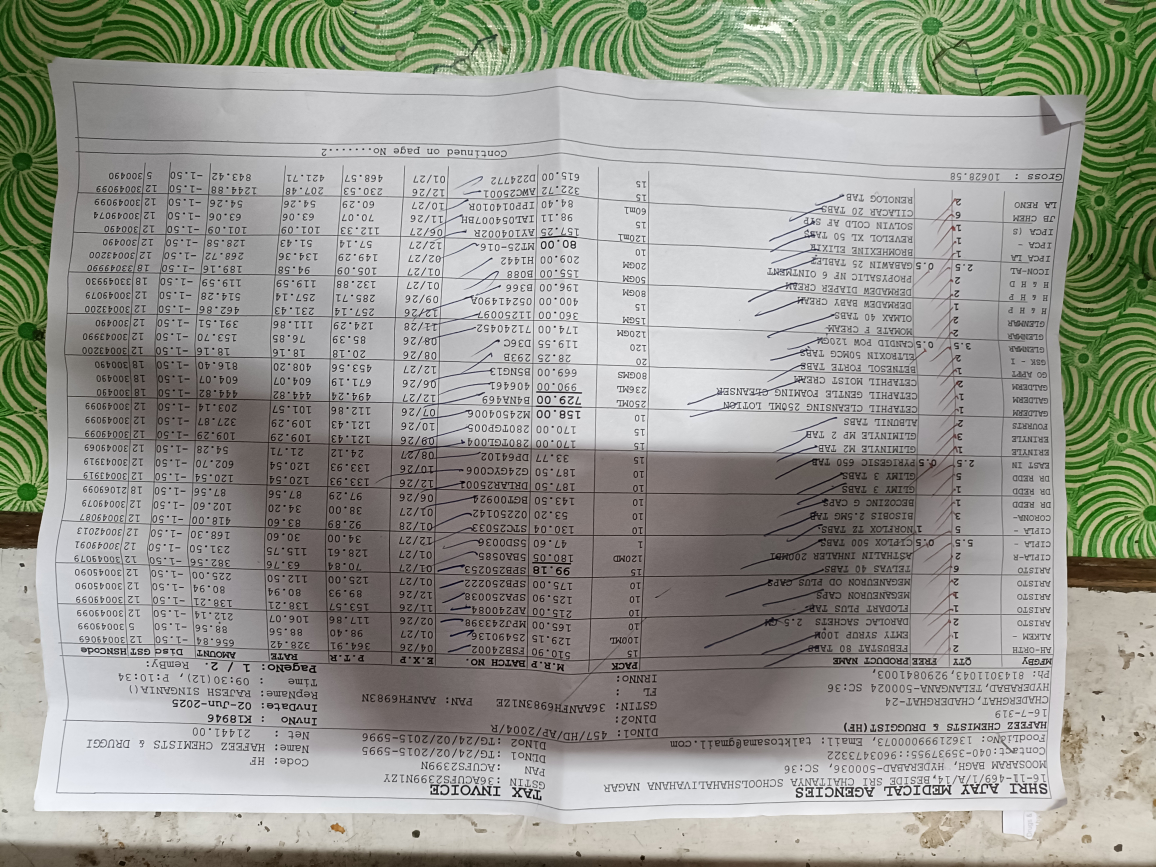 SHRI AJAY MEDICAL AGENCIES TAX INVOICE
16-11-469/1/A/14, BESIDE SRI CHAITANYA SCHOOLSHALIVAHANA NAGAR GSTIN :36ACUFS2399N1ZY
MOOSARAM BAGH, HYDERABAD-500036, SC:36 PAN :ACUFS2399N
Contact:040-35937955::9603473322 DlNO1 :TG/24/02/2015-5995
FoodLicNo: 13621999000073, Email: talktosama@gmail.com DlNO2 :TG/24/02/2015-5996
HAFEEZ CHEMISTS & DRUGGIST(HF) DlNO1: 457/HD/AP/2004/R Name: HAFEEZ CHEMISTS & DRUGGI
16-7-319 DlNO2: Code: HF
CHADERGHAT, CHADERGHAT-24 GSTIN: 36AANFH6983N1ZE PAN: AANFH6983N Net : 21441.00
HYDERABAD, TELANGANA-500024 SC:36 FL : InvNo : K18946
Ph: 8143011043, 9290841003, IRNNo: InvDate: 02-Jun-2025
RepName: RAJESH SINGANIA()
Time : 09:30(12), P:10:34
PageNo: 1 / 2. RemBy:
MFGBY QTY FREE PRODUCT NAME PACK M.R.P BATCH NO. E.X.P P.T.R RATE AMOUNT Disc GST HSNcode
AH-ORTH 2 FEBUSTAT 80 TABS 15 510.90 SPB24002 04/26 364.91 328.42 656.84 -1.50 12 30049069
ALKEM - 1 ENTY SYRUP 100M 100ML 129.15 25490136 01/27 98.40 88.56 88.56 -1.50 5 30049099
ARISTO 2 DAROLAC SACHETS 2.5 GM 10 165.00 MP243398 02/26 117.86 106.07 212.14 -1.50 12 30049099
ARISTO 1 FLODART PLUS TAB 10 215.00 AP240840 11/26 153.57 138.21 138.21 -1.50 12 30049099
ARISTO 1 MEGANEURON CAPS 10 125.90 SPAC250038 12/26 89.93 80.94 80.94 -1.50 12 30045090
ARISTO 2 MEGANEURON OD PLUS CAPS 10 175.00 SPB250222 01/27 125.00 112.50 225.00 -1.50 12 30045090
ARISTO 6 TELVAS 40 TABS 15 99.18 SPB250253 01/27 70.84 63.76 382.56 -1.50 12 30049079
CIPLA-R 2 ASTHALIN INHALER 200MDI 120MD 180.05 SBA0585 01/27 128.61 115.75 231.50 -1.50 12 30049091
CIPLA - 5.5 0.5 CIPLOX 500 TABS 1 47.60 SSD0036 12/27 34.00 30.60 168.30 -1.50 12 30042013
CIPLA - 5 NORFLOX TZ TABS 10 130.04 STC25033 01/28 92.89 83.60 418.00 -1.50 12 30049087
CORONA- 3 BISOBIS 2.5MG TAB 10 53.20 02250142 01/27 38.00 34.20 102.60 -1.50 12 30049079
DR REDD 1 BECOZINC G CAPS 10 143.50 BGT00924 06/26 97.29 87.56 87.56 -1.50 18 21069099
DR REDD 1 GLIMY 3 TABS 10 187.50 DRLAR25001 12/26 133.93 120.54 120.54 -1.50 12 30043919
DR REDD 5 GLIMY 3 TABS 10 187.50 G24GYC006 10/26 133.93 120.54 602.70 -1.50 12 30043919
EAST IN 2.5 0.5 PYRIGESIC 650 TAB 15 33.77 DP64102 08/27 24.12 21.71 54.28 -1.50 12 30049069
ERINYLE 1 GLIMINYLE M2 TAB 15 170.00 2801GL004 09/26 121.43 109.29 109.29 -1.50 12 30049099
ERINYLE 3 GLIMINYLE MP 2 TAB 15 170.00 2807GP005 10/26 121.43 109.29 327.87 -1.50 12 30049099
FOURRTS 2 ALBUNIL TABS 10 158.00 M24524006 07/26 112.86 101.57 203.14 -1.50 12 30049099
GALDERM 1 CETAPHIL CLEANSING 250ML LOTION 250ML 729.00 BANA469 12/27 494.24 444.82 444.82 -1.50 18 300490
GALDERM 1 CETAPHIL GENTLE FOAMING CLEANSER 236ML 990.00 406461 06/26 671.19 604.07 604.07 -1.50 18 300490
GALDERM 2 CETAPHIL MOIST CREAM 80GMS 669.00 BSNG13 12/27 453.56 408.20 816.40 -1.50 18 300490
GO APPT 1 BETNESOL FORTE TABS 20 28.25 293B 08/26 20.18 18.16 18.16 -1.50 12 30043200
GSK - I 2 ELTROXIN 50MCG TABS 120 119.55 D36C 08/26 85.39 76.85 153.70 -1.50 12 30043990
GLENMAR 3.5 0.5 CANDID POW 120GM 120GM 174.00 71240452 11/28 124.29 111.86 391.51 -1.50 12 300490
GLENMAR 2 MOMATE F CREAM 15GM 360.00 11250097 12/26 257.14 231.43 462.86 -1.50 12 30043200
GLENMAR 2 OLMAX 40 TABS 15 400.00 05241490A 09/26 285.71 257.14 514.28 -1.50 12 30049079
H & H P 1 DERMADEW BABY CREAM 80GM 196.00 B366 01/27 132.88 119.59 119.59 -1.50 18
H & H P 2 DERMADEW DIAPER CREAM 50GM 155.00 B088 01/27 105.09 94.58 189.16 -1.50 18 33049990
H & H D 2 PROPYSALIC NF 6 OINTMENT 20GM 209.00 H1442 02/27 149.29 134.36 268.72 -1.50 12 30043200
ICON-AL 2.5 0.5 GABAWIN 25 TABLET 10 80.00 MT25-016 12/27 57.14 51.43 128.58 -1.50 12 300490
IPCA LA 1 BROMHEXINE ELIXIR 120ml 157.25 AY104002R 06/27 112.33 101.09 101.09 -1.50 12 300490
IPCA - 1 REVELOL XL 50 TABS 15 98.11 IAL054078H 11/26 70.07 63.06 63.06 -1.50 12 30049074
IPCA (S) 1 SOLVIN COLD AF SYP 60ml 84.40 IPP014010R 10/27 60.29 54.26 54.26 -1.50 12 30049099
JB CHEM 6 CILACAR 20 TABS 15 322.72 AWC25001 12/26 230.53 207.48 1244.88 -1.50 12 30049099
LA RENO 2 RENOLOG TAB 15 615.00 D224772 01/27 468.57 421.71 843.42 -1.50 5 300490
Gross : 10628.58
Continued on page No.......2